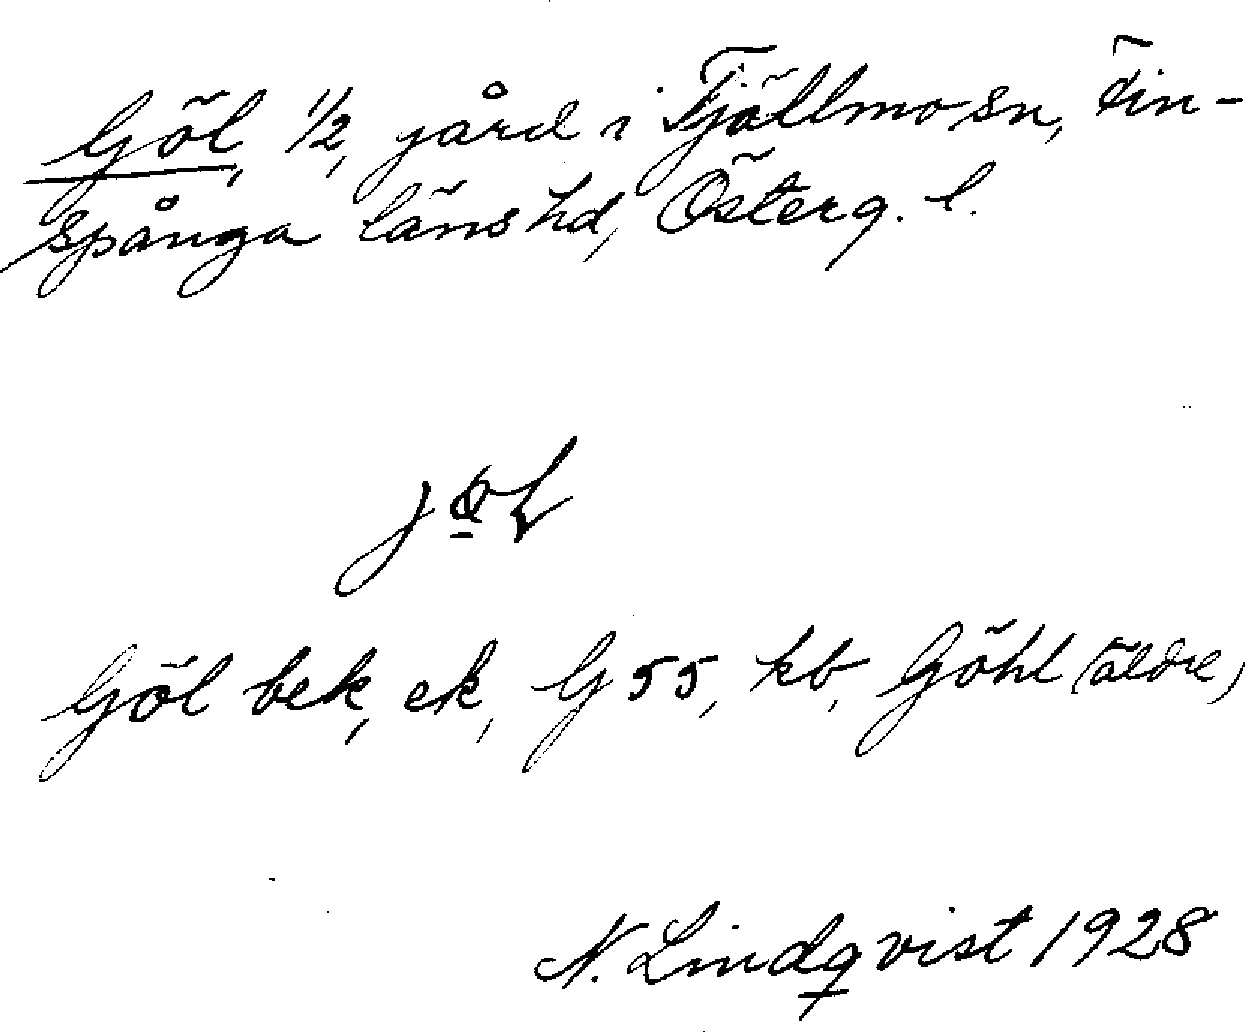 Göl, 1/2, gård i Tjällmo sn, Fin-
spånga läns hd, Österg. l.
Göl bek, ek, G 55, kb, Göhl (äldre)
N. Lindqvist 1928